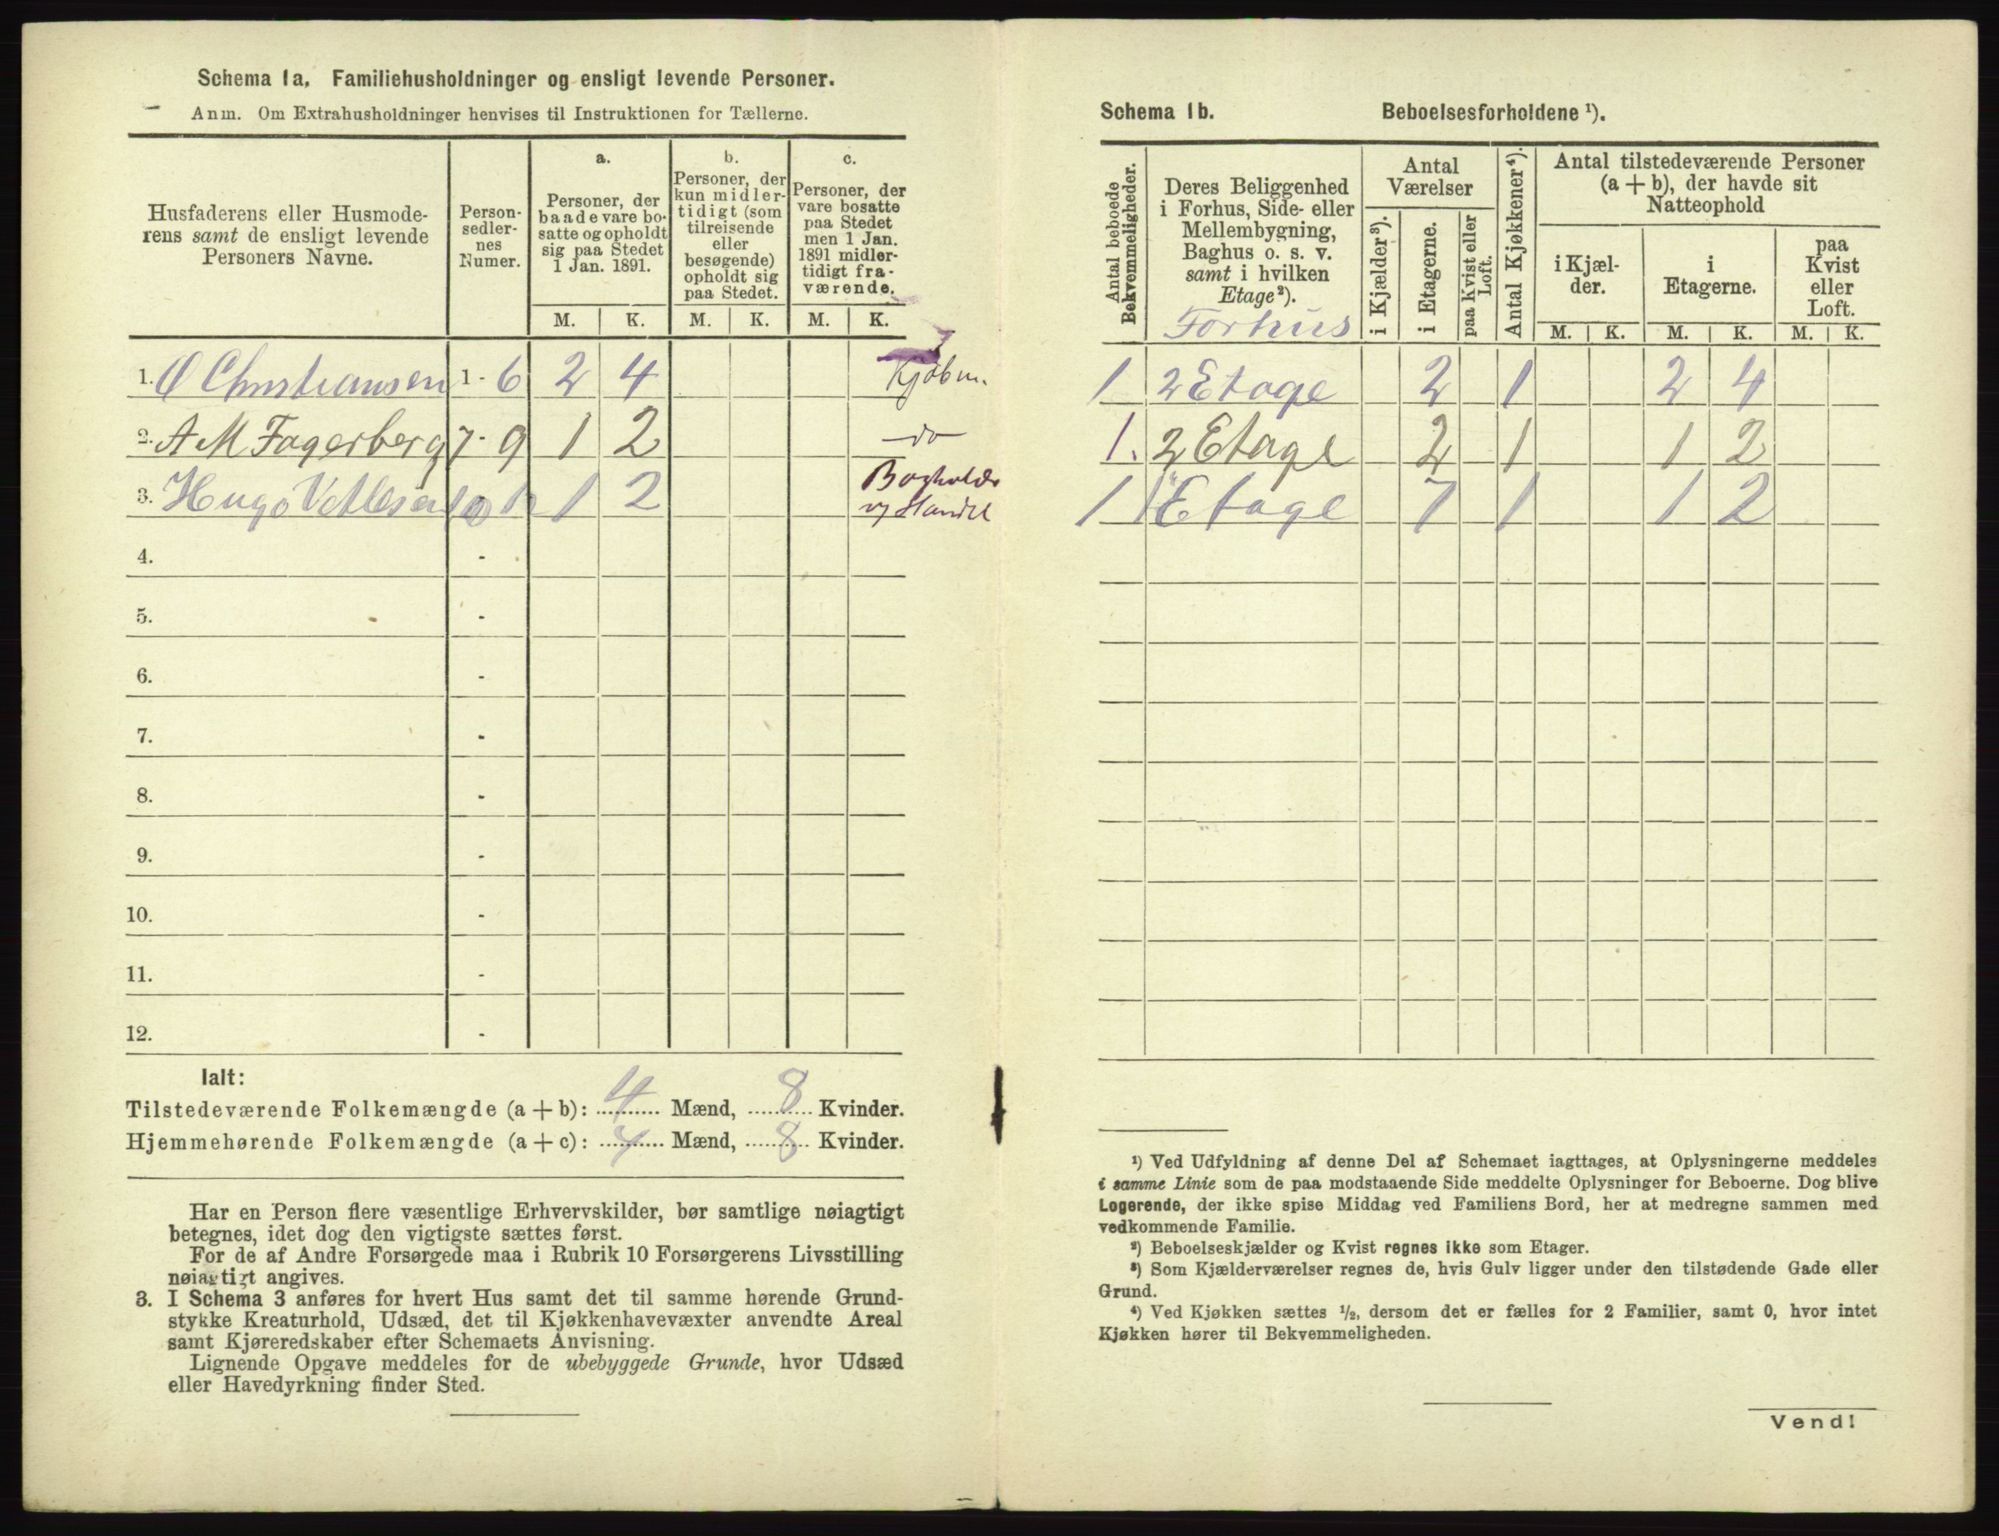 Schema 1a. Familiehusholdninger og ensligt levende Personer.
Anm. Om Extrahusholdninger henvises til Instruktionen for Tællerne.
Husfaderens eller Husmoderens samt de ensligt levende Personers Navne.
Personsedlernes Numer.
a. Personer, der baade vare bosatte og opholdt sig paa Stedet 1 Jan. 1891.
b. Personer, der kun midlertidigt (som tilreisende eller besøgende) opholdt sig paa Stedet.
c. Personer, der vare bosatte paa Stedet men 1 Jan. 1891 midlertidigt fraværende.
M. K. M. K. M. K.
1. O Christiansen 1 - 6 2 4 Kjøbm.
2. A M Fagerberg 7 - 9 1 2 do
3. Hugo Vetlesen 10 12 1 2 Bogholder
og Handel
4. -
5. -
6. -
7. -
8. -
9. -
10. -
11. -
12. -
Ialt:
Tilstedeværende Folkemængde (a + b): 4 Mænd, 8 Kvinder.
Hjemmehørende Folkemængde (a + c): 4 Mænd, 8 Kvinder.
Har en Person flere væsentlige Erhvervskilder, bør samtlige nøiagtigt
betegnes, idet dog den vigtigste sættes først.
For de af Andre Forsørgede maa i Rubrik 10 Forsørgerens Livsstilling
nøiagtigt angives.
3. I Schema 3 anføres for hvert Hus samt det til samme hørende Grund-
stykke Kreaturhold, Udsæd, det til Kjøkkenhavevæxter anvendte Areal
samt Kjøreredskaber efter Schemaets Anvisning.
Lignende Opgave meddeles for de ubebyggede Grunde, hvor Udsæd
eller Havedyrkning finder Sted.
Schema 1b. Beboelsesforholdene ¹).
Antal beboede Bekvemmeligheder.
Deres Beliggenhed i Forhus, Side- eller Mellembygning, Baghus o. s. v. samt i hvilken Etage²).
Forhus
Antal Værelser
i Kjælder³). i Etagerne. paa Kvist eller Loft.
Antal Kjøkkener⁴).
Antal tilstedeværende Personer (a + b), der havde sit Natteophold
i Kjælder. i Etagerne. paa Kvist eller Loft.
M. K. M. K. M. K.
1 2 Etage 2 1 2 4
1. 2 Etage 2 1 1 2
1 1 Etage 7 1 1 2
¹) Ved Udfyldning af denne Del af Schemaet iagttages, at Oplysningerne meddeles
i samme Linie som de paa modstaaende Side meddelte Oplysninger for Beboerne. Dog blive
Logerende, der ikke spise Middag ved Familiens Bord, her at medregne sammen med
vedkommende Familie.
²) Beboelseskjælder og Kvist regnes ikke som Etager.
³) Som Kjælderværelser regnes de, hvis Gulv ligger under den tilstødende Gade eller
Grund.
⁴) Ved Kjøkken sættes ½, dersom det er fælles for 2 Familier, samt 0, hvor intet
Kjøkken hører til Bekvemmeligheden.
Vend!